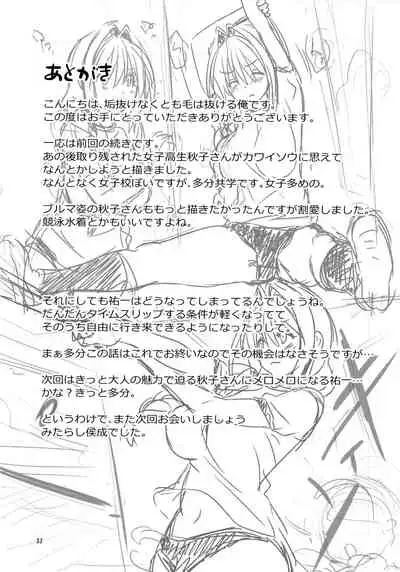 あとがき
こんにちは、垢抜けなくとも毛は抜ける俺です。
この度はお手にとっていただきありがとうございます。
一応は前回の続きです。
あの後取り残された女子高生秋子さんがカワイソウに思えて
なんとかしようと描きました。
なんとなく女子校ぽいですが、多分共学です。女子多めの。
ブルマ姿の秋子さんももっと描きたかったんですが割愛しました。
競泳水着とかもいいですよね。
それにしても祐一はどうなってしまってるんでしょうね。
だんだんタイムスリップする条件が軽くなってて
そのうち自由に行き来できるようになったりして。
まぁ多分この話はこれでお終いなのでその機会はなさそうですが…
次回はきっと大人の魅力で迫る秋子さんにメロメロになる祐一…
かな？きっと多分。
というわけで、また次回お会いしましょう
みたらし侯成でした。
32